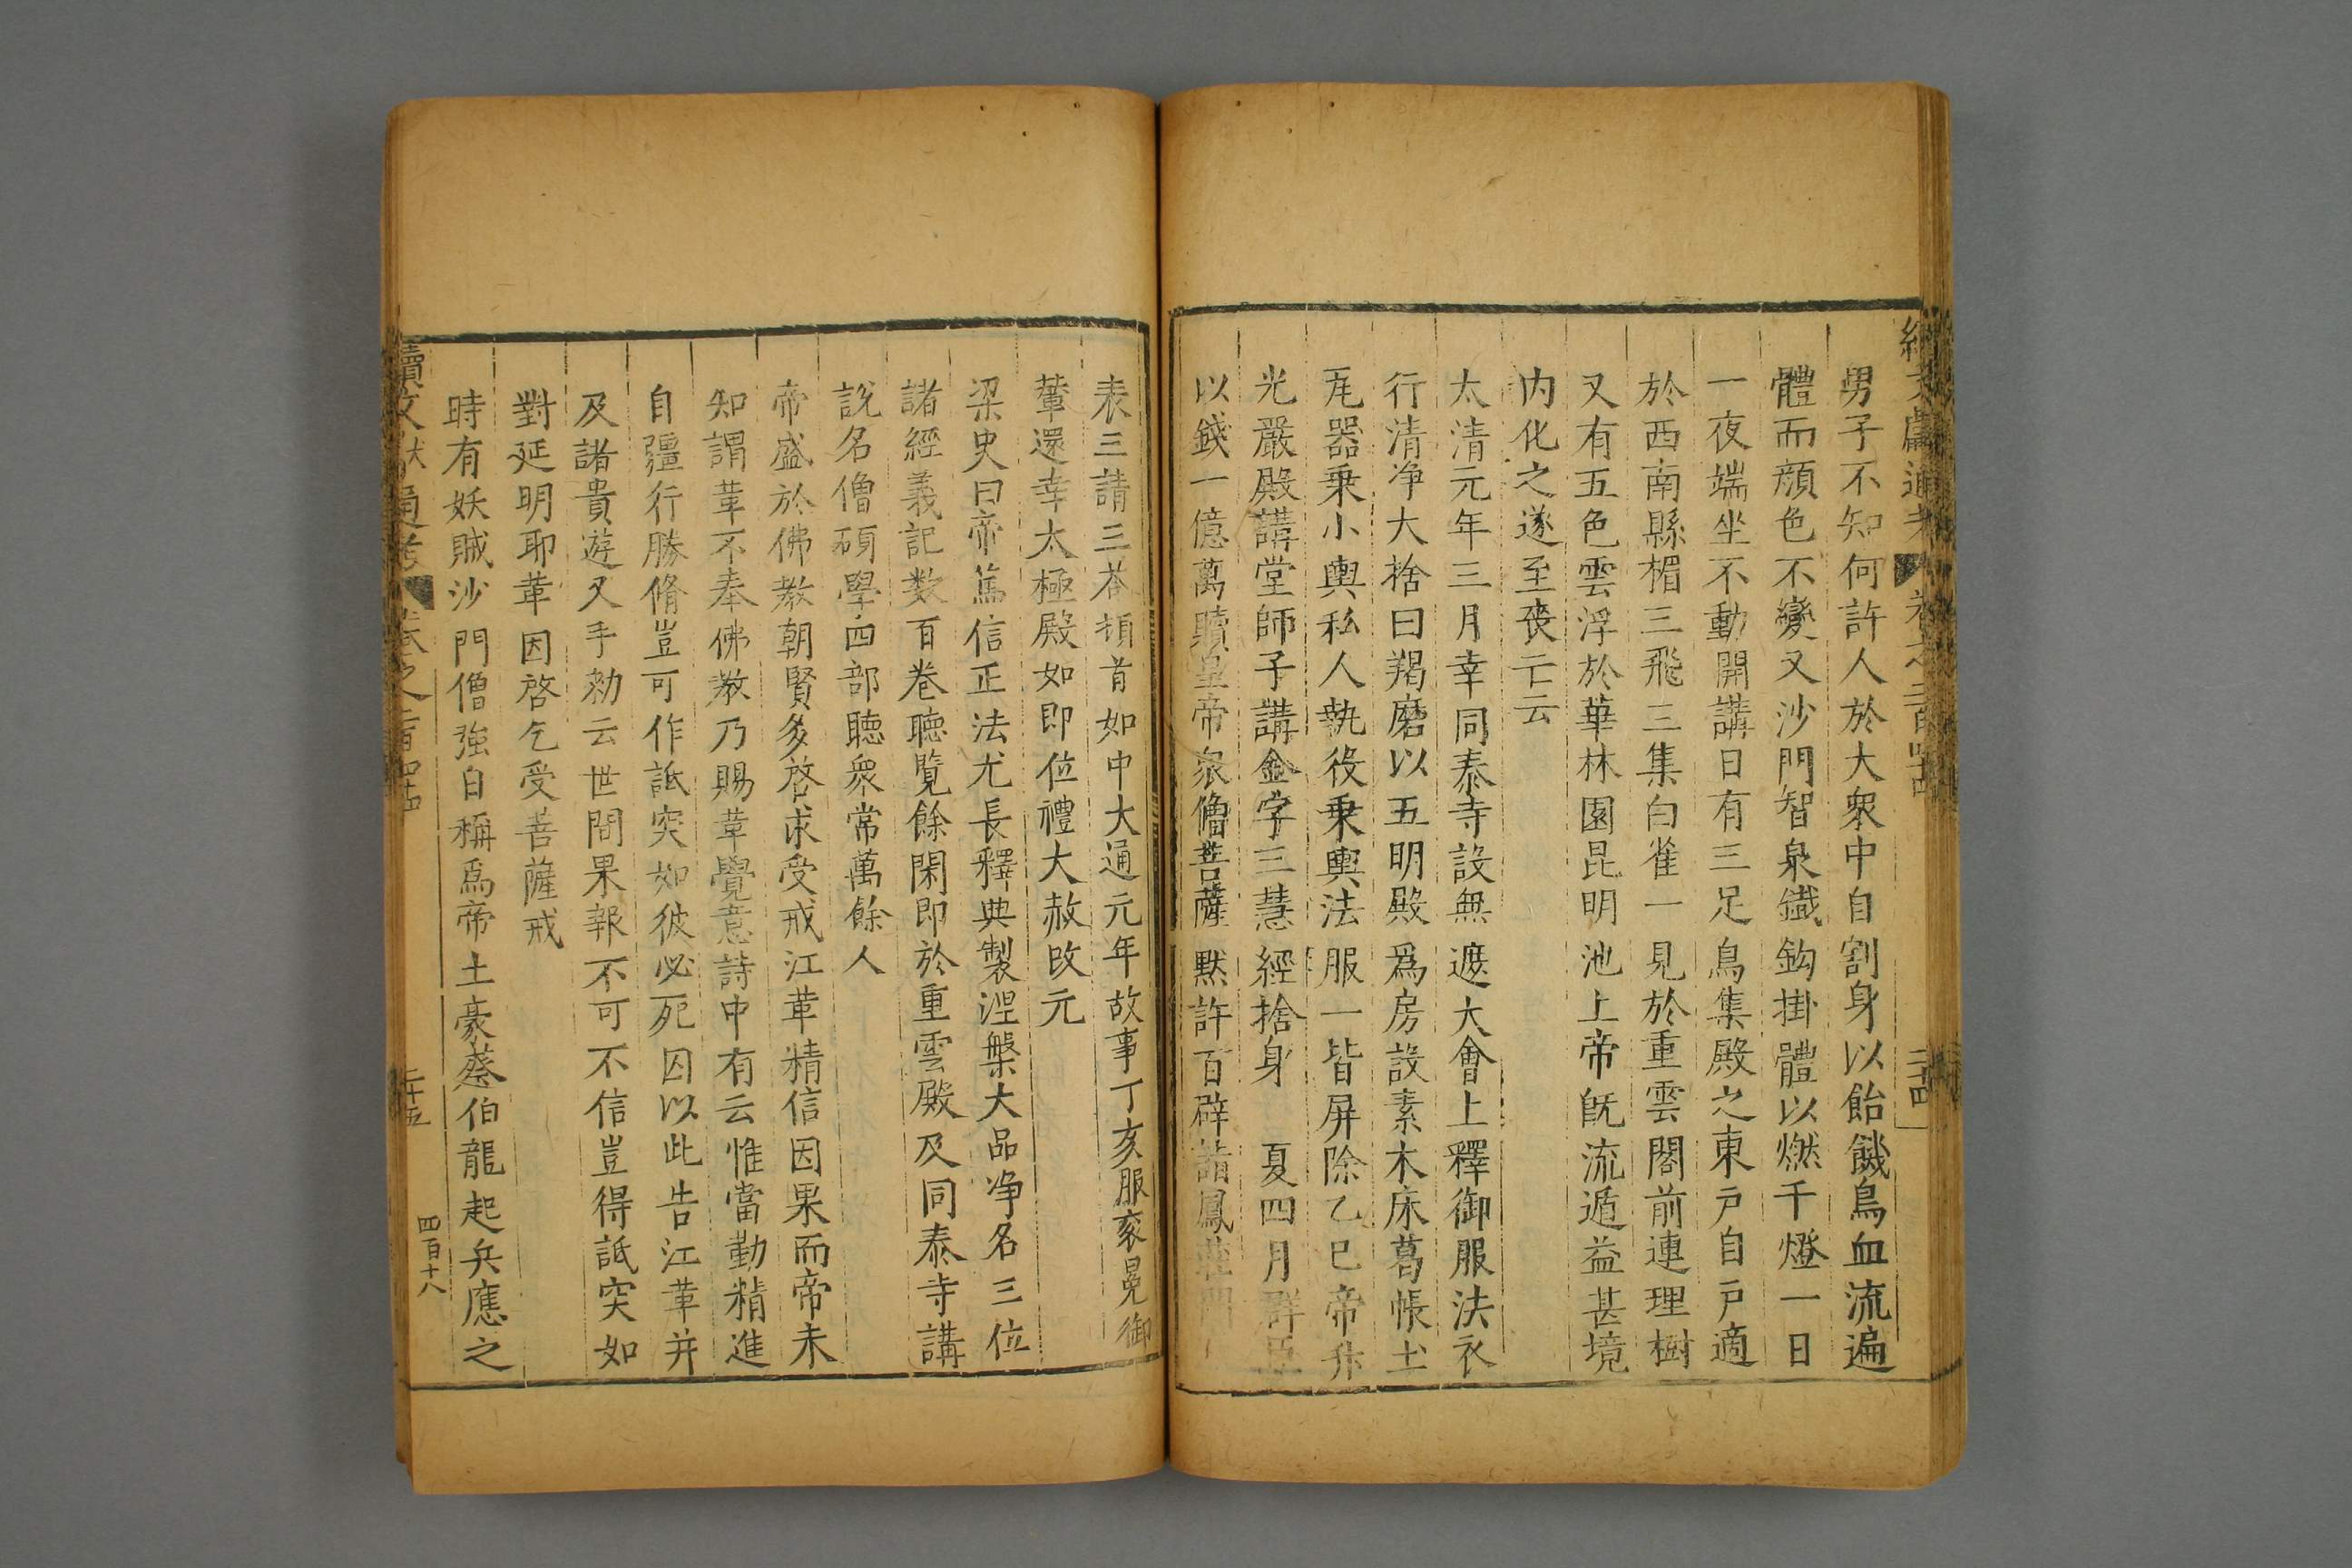 男子不知何許人於大衆中自割身以飴饑鳥血流遍
體而顔色不變又沙門智泉鐵鈎掛體以燃千燈一日
一夜端坐不動開講日有三足鳥集殿之東戶自戶適
於西南縣楣三飛三集白雀一見於重雲閣前連理樹
又有五色雲浮於華林園昆明池上帝旣流遁益甚境
内化之遂至喪亡云
太清元年三月幸同泰寺設無遮大會上釋御服法衣
行清净大捨曰羯磨以五明殿爲房設素木床葛帳土
瓦器乗小輿私人執役乗輿法服一皆屏除乙巳帝升
光嚴殿講堂師子講金字三慧經捨身 夏四月群臣
以錢一億萬贖皇帝衆僧菩薩默許百辟詣鳳
表三請三荅頓首如中大通元年故事丁亥服衮冕御
輦還幸太極殿如即位禮大赦改元
梁史曰帝篤信正法尤長釋典製涅槃大品净名三位
諸經義記数百卷聽覧餘閑即於重雲殿及同泰寺講
說名僧碩學四部聽衆常萬餘人
帝盛於佛教朝賢多啓求受戒江革精信因果而帝未
知謂革不奉佛教乃賜革覺意詩中有云惟當勤精進
自彊行勝脩豈可作詆突如彼必死囚以此告江革并
及諸貴遊又手勑云世間果報不可不信豈得詆突如
對延明耶革因啓乞受菩薩戒
時有妖賊沙門僧強自稱爲帝土豪蔡伯龍起兵應之
續文獻通考 卷之二百四十四 二十五
四百十八